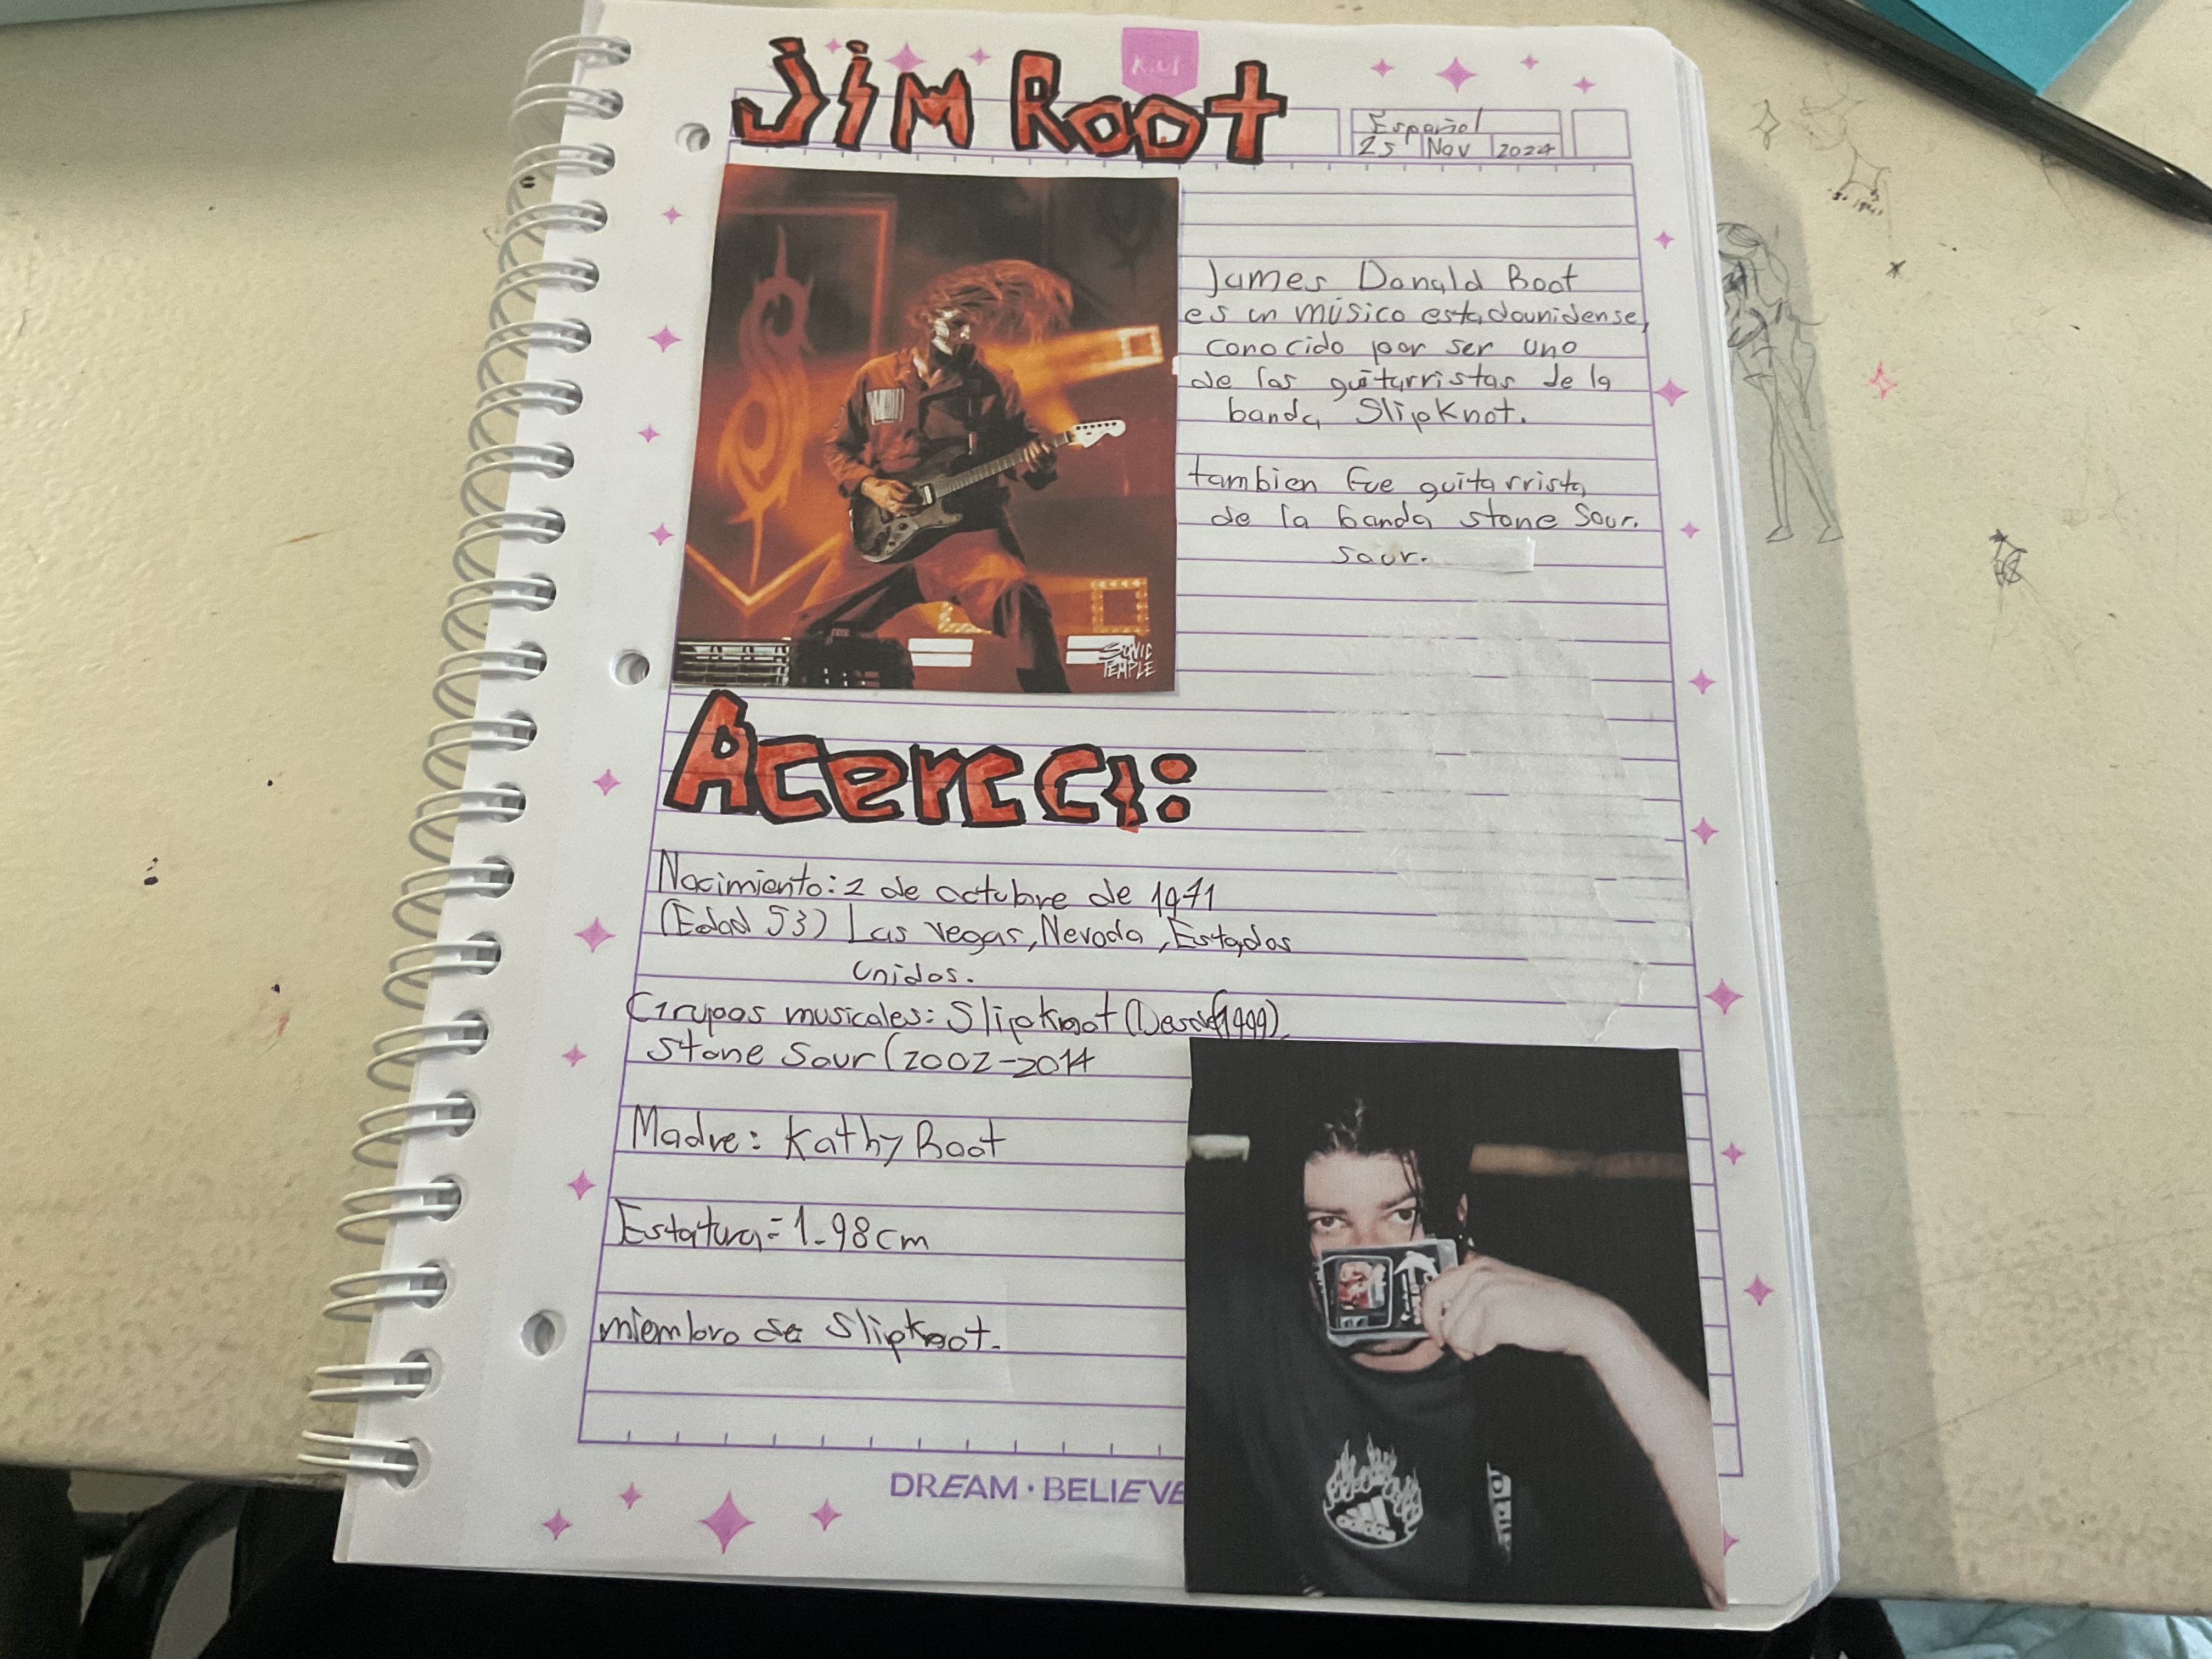 Jim Root
Español
25 Nov 2024
James Donald Root
es un músico estadounidense,
conocido por ser uno
de los guitarristas de la
banda Slipknot.
tambien fue guitarrista
de la banda stone Sour.
sour.
SONIC
TEMPLE
Acerca:
Nacimiento: 2 de octubre de 1971
(Edad 53) Las vegas, Nevada, Estados
unidos.
Grupos musicales: Slipknot (Desde(1999).
Stone Sour (2002-2014
Madre: Kathy Root
Estatura= 1-98cm
miembro de Slipknot.
adidas
DREAM · BELIEVE